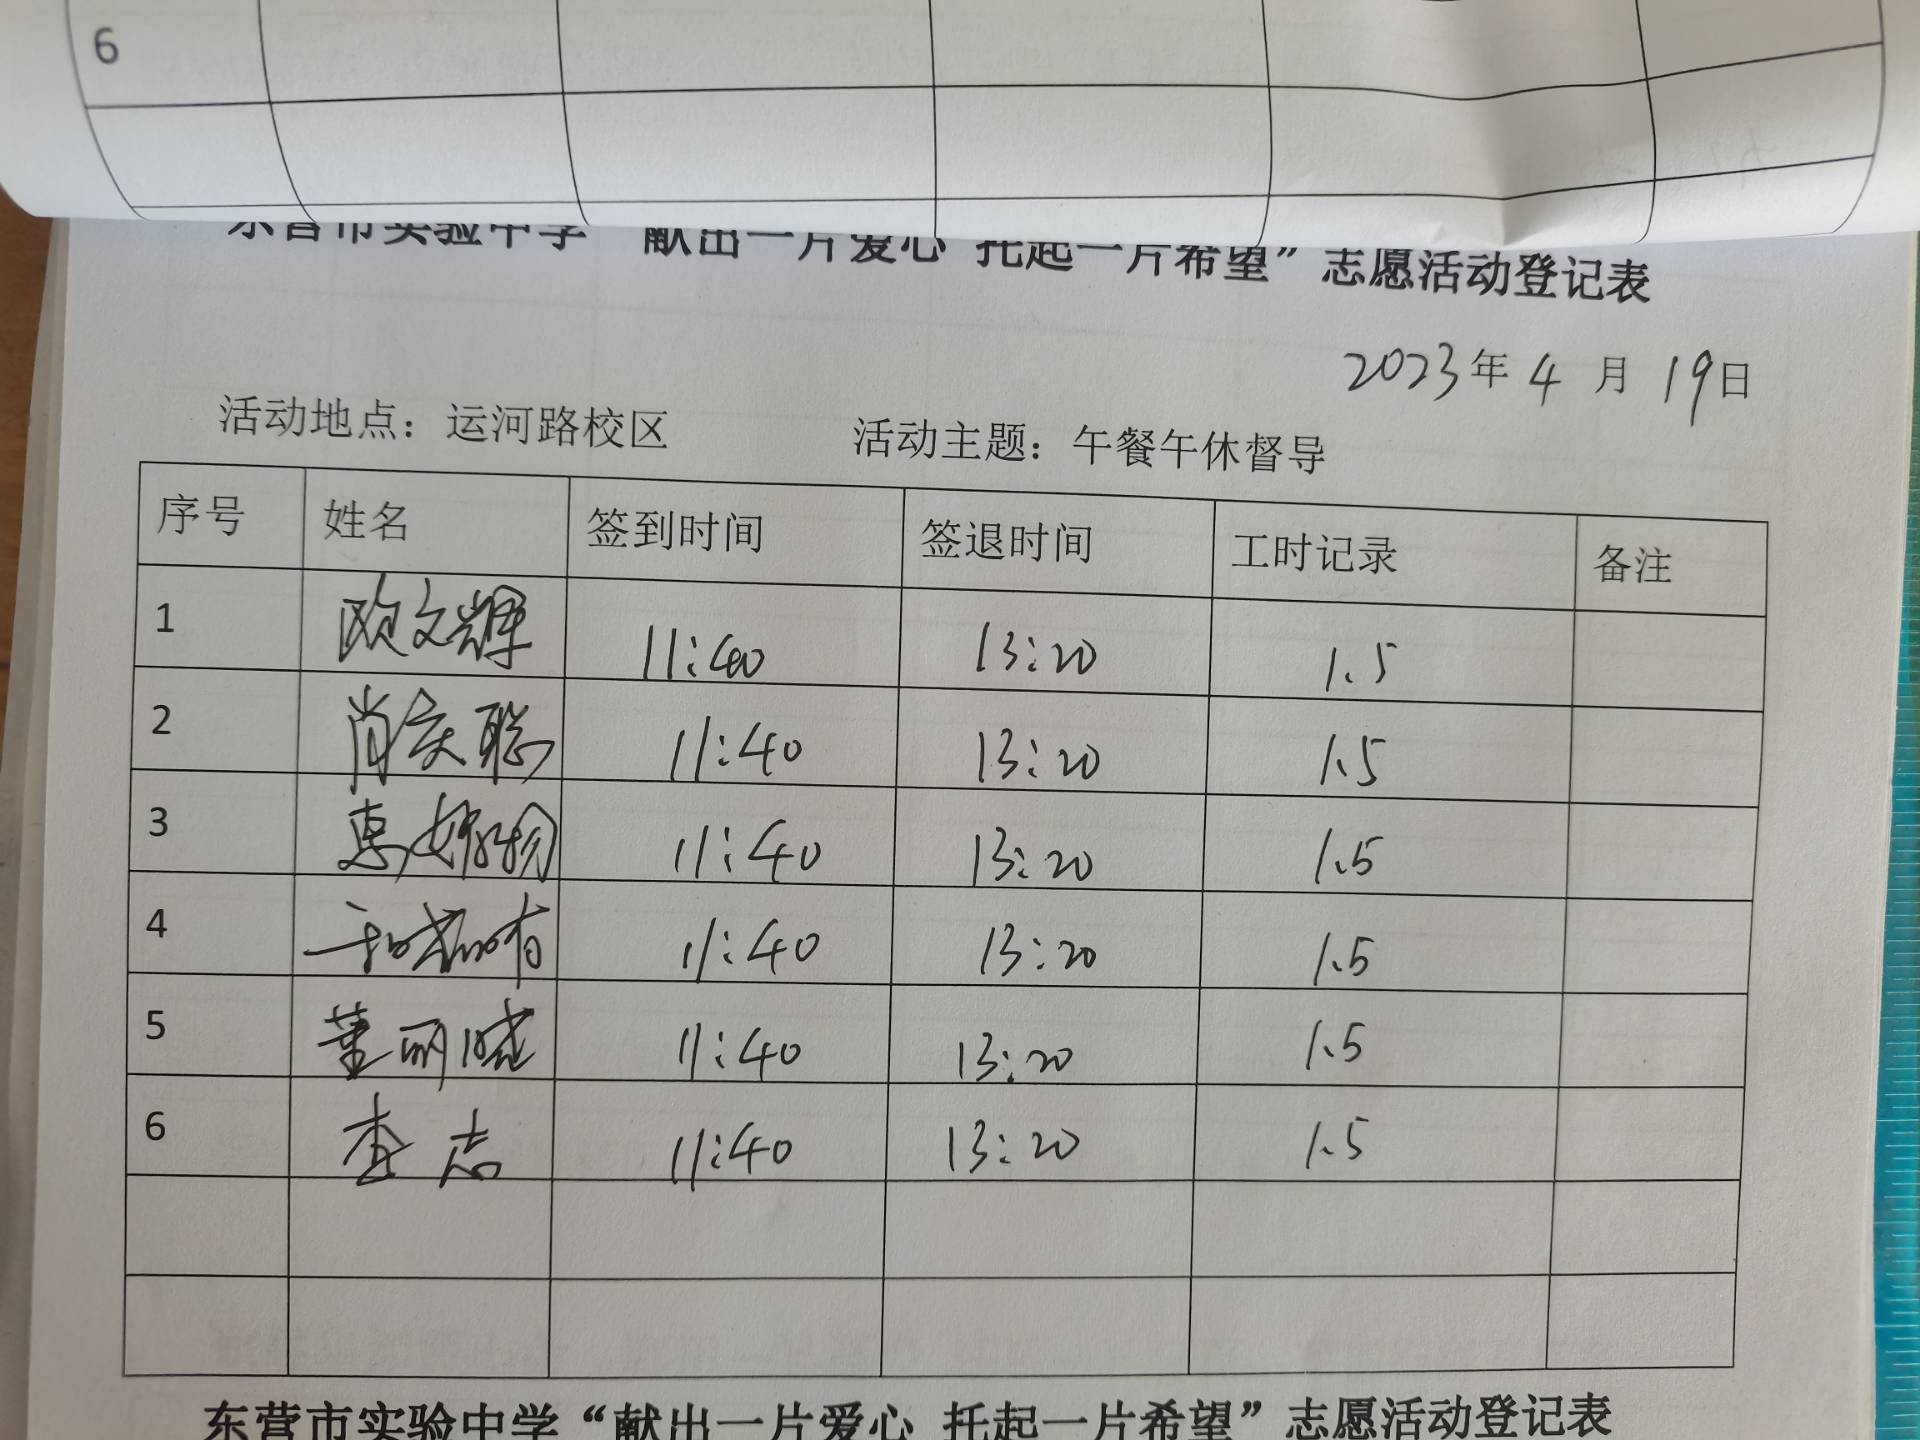 6
东营市实验中学“献出一片爱心 托起一片希望”志愿活动登记表
2023年4月19日
活动地点：运河路校区 活动主题：午餐午休督导
序号 姓名 签到时间 签退时间 工时记录 备注
1 欧文辉 11:40 13:20 1.5
2 肖庆聪 11:40 13:20 1.5
3 11:40 13:20 1.5
4 11:40 13:20 1.5
5 董丽晓 11:40 13:20 1.5
6 查志 11:40 13:20 1.5
东营市实验中学“献出一片爱心 托起一片希望”志愿活动登记表